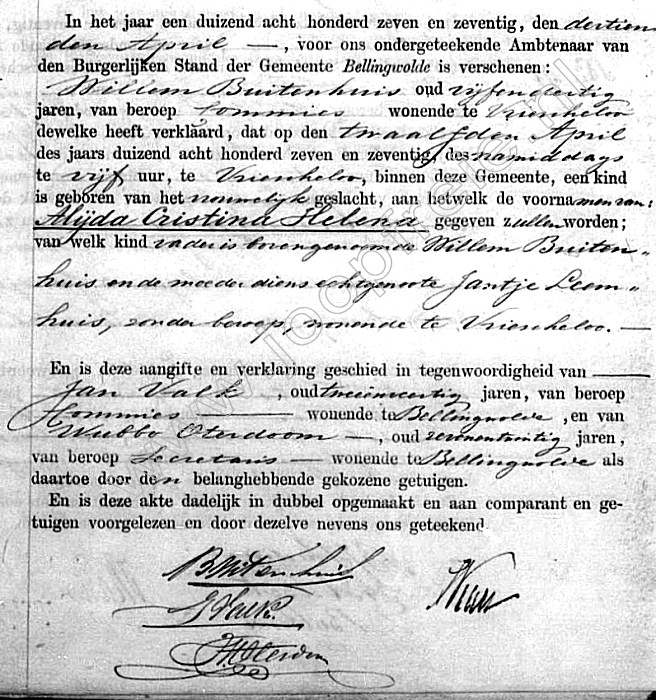 In het jaar een duizend acht honderd zeven en zeventig, den dertien
den April —, voor ons ondergeteekende Ambtenaar van
den Burgerlijken Stand der Gemeente Bellingwolde is verschenen:
Willem Buitenhuis oud vijfendertig
jaren, van beroep Kommies wonende te Vriescheloo
dewelke heeft verklaard, dat op den twaalfden April
des jaars duizend acht honderd zeven en zeventig, des namiddags
te vijf uur, te Vriescheloo, binnen deze Gemeente, een kind
is geboren van het vrouwelijk geslacht, aan hetwelk de voornamen van:
Alijda Cristina Helena gegeven zullen worden;
van welk kind vader is bovengenoemde Willem Buiten„
huis en de moeder diens echtgenoote Jantje Leem„
huis, zonder beroep, wonende te Vriescheloo. —
En is deze aangifte en verklaring geschied in tegenwoordigheid van —
Jan Valk, oud tweeenveertig jaren, van beroep
Kommies — wonende te Bellingwolde, en van
Wubbo Oterdoom —, oud zevenentwintig jaren,
van beroep Secretaris — wonende te Bellingwolde als
daartoe door den belanghebbende gekozene getuigen.
En is deze akte dadelijk in dubbel opgemaakt en aan comparant en ge-
tuigen voorgelezen en door dezelve nevens ons geteekend.
Buitenhuis
J Valk.
WOterdoom